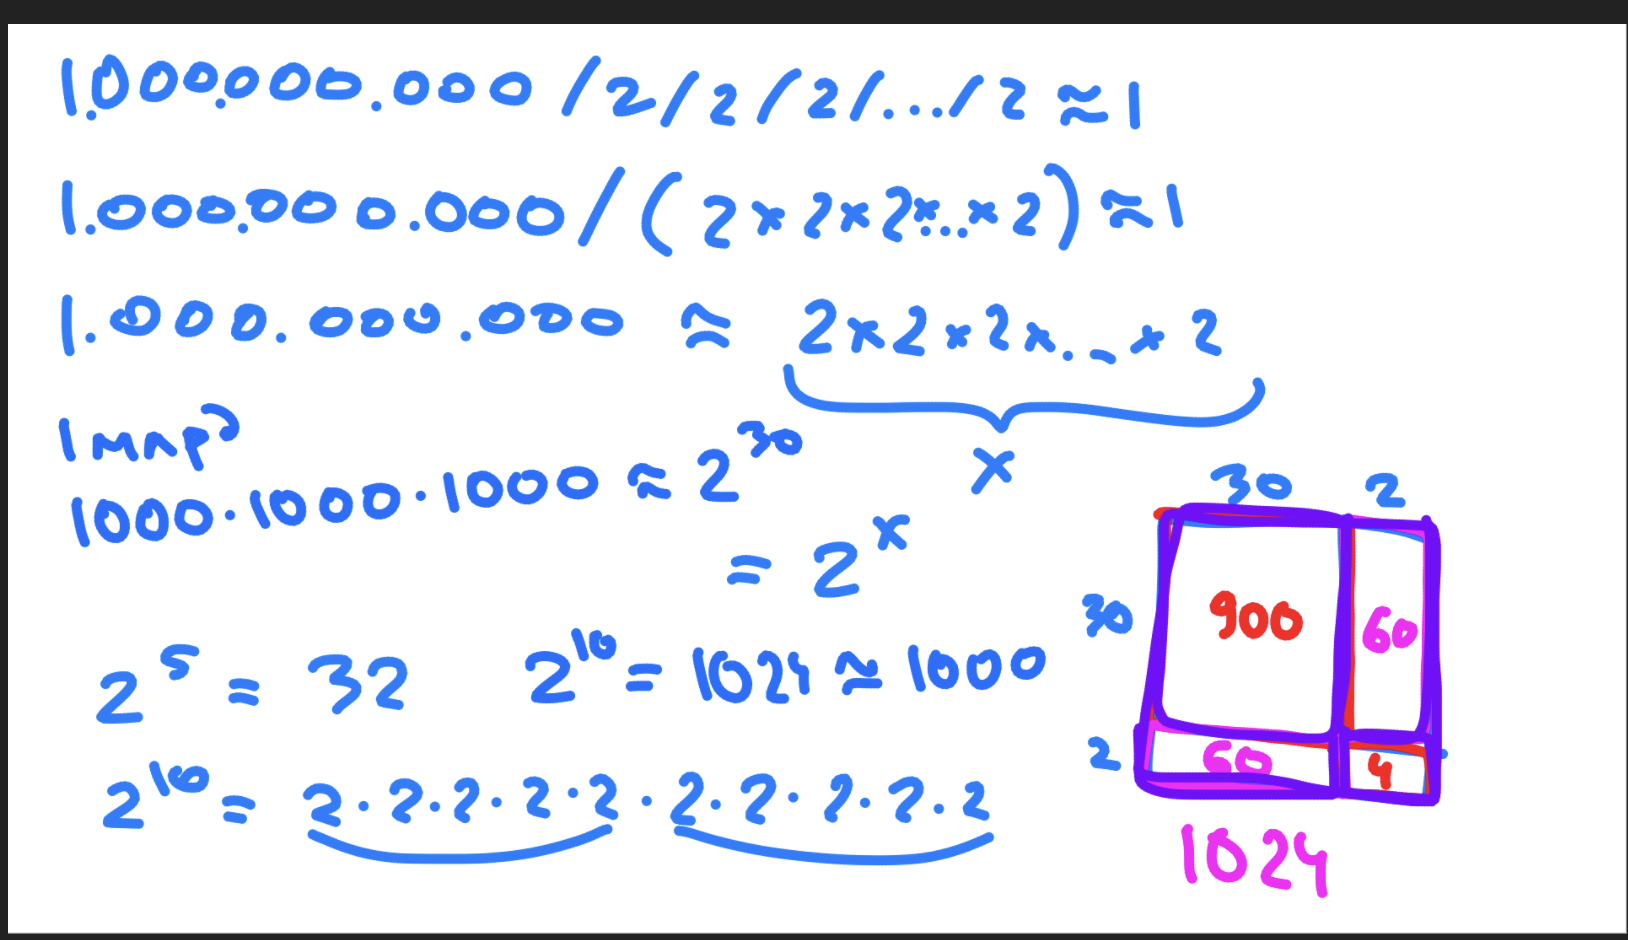 1.000.000.000 / 2 / 2 / 2 / ... / 2 ≈ 1
1.000.000.000 / ( 2 × 2 × 2 × ... × 2 ) ≈ 1
1.000.000.000 ≈ 2 × 2 × 2 × ... × 2
x
1 млрд
1000 · 1000 · 1000 ≈ 2^30
= 2^x
2^5 = 32 2^10 = 1024 ≈ 1000
2^10 = 2 · 2 · 2 · 2 · 2 · 2 · 2 · 2 · 2 · 2
30 2
30 900 60
2 60 4
1024